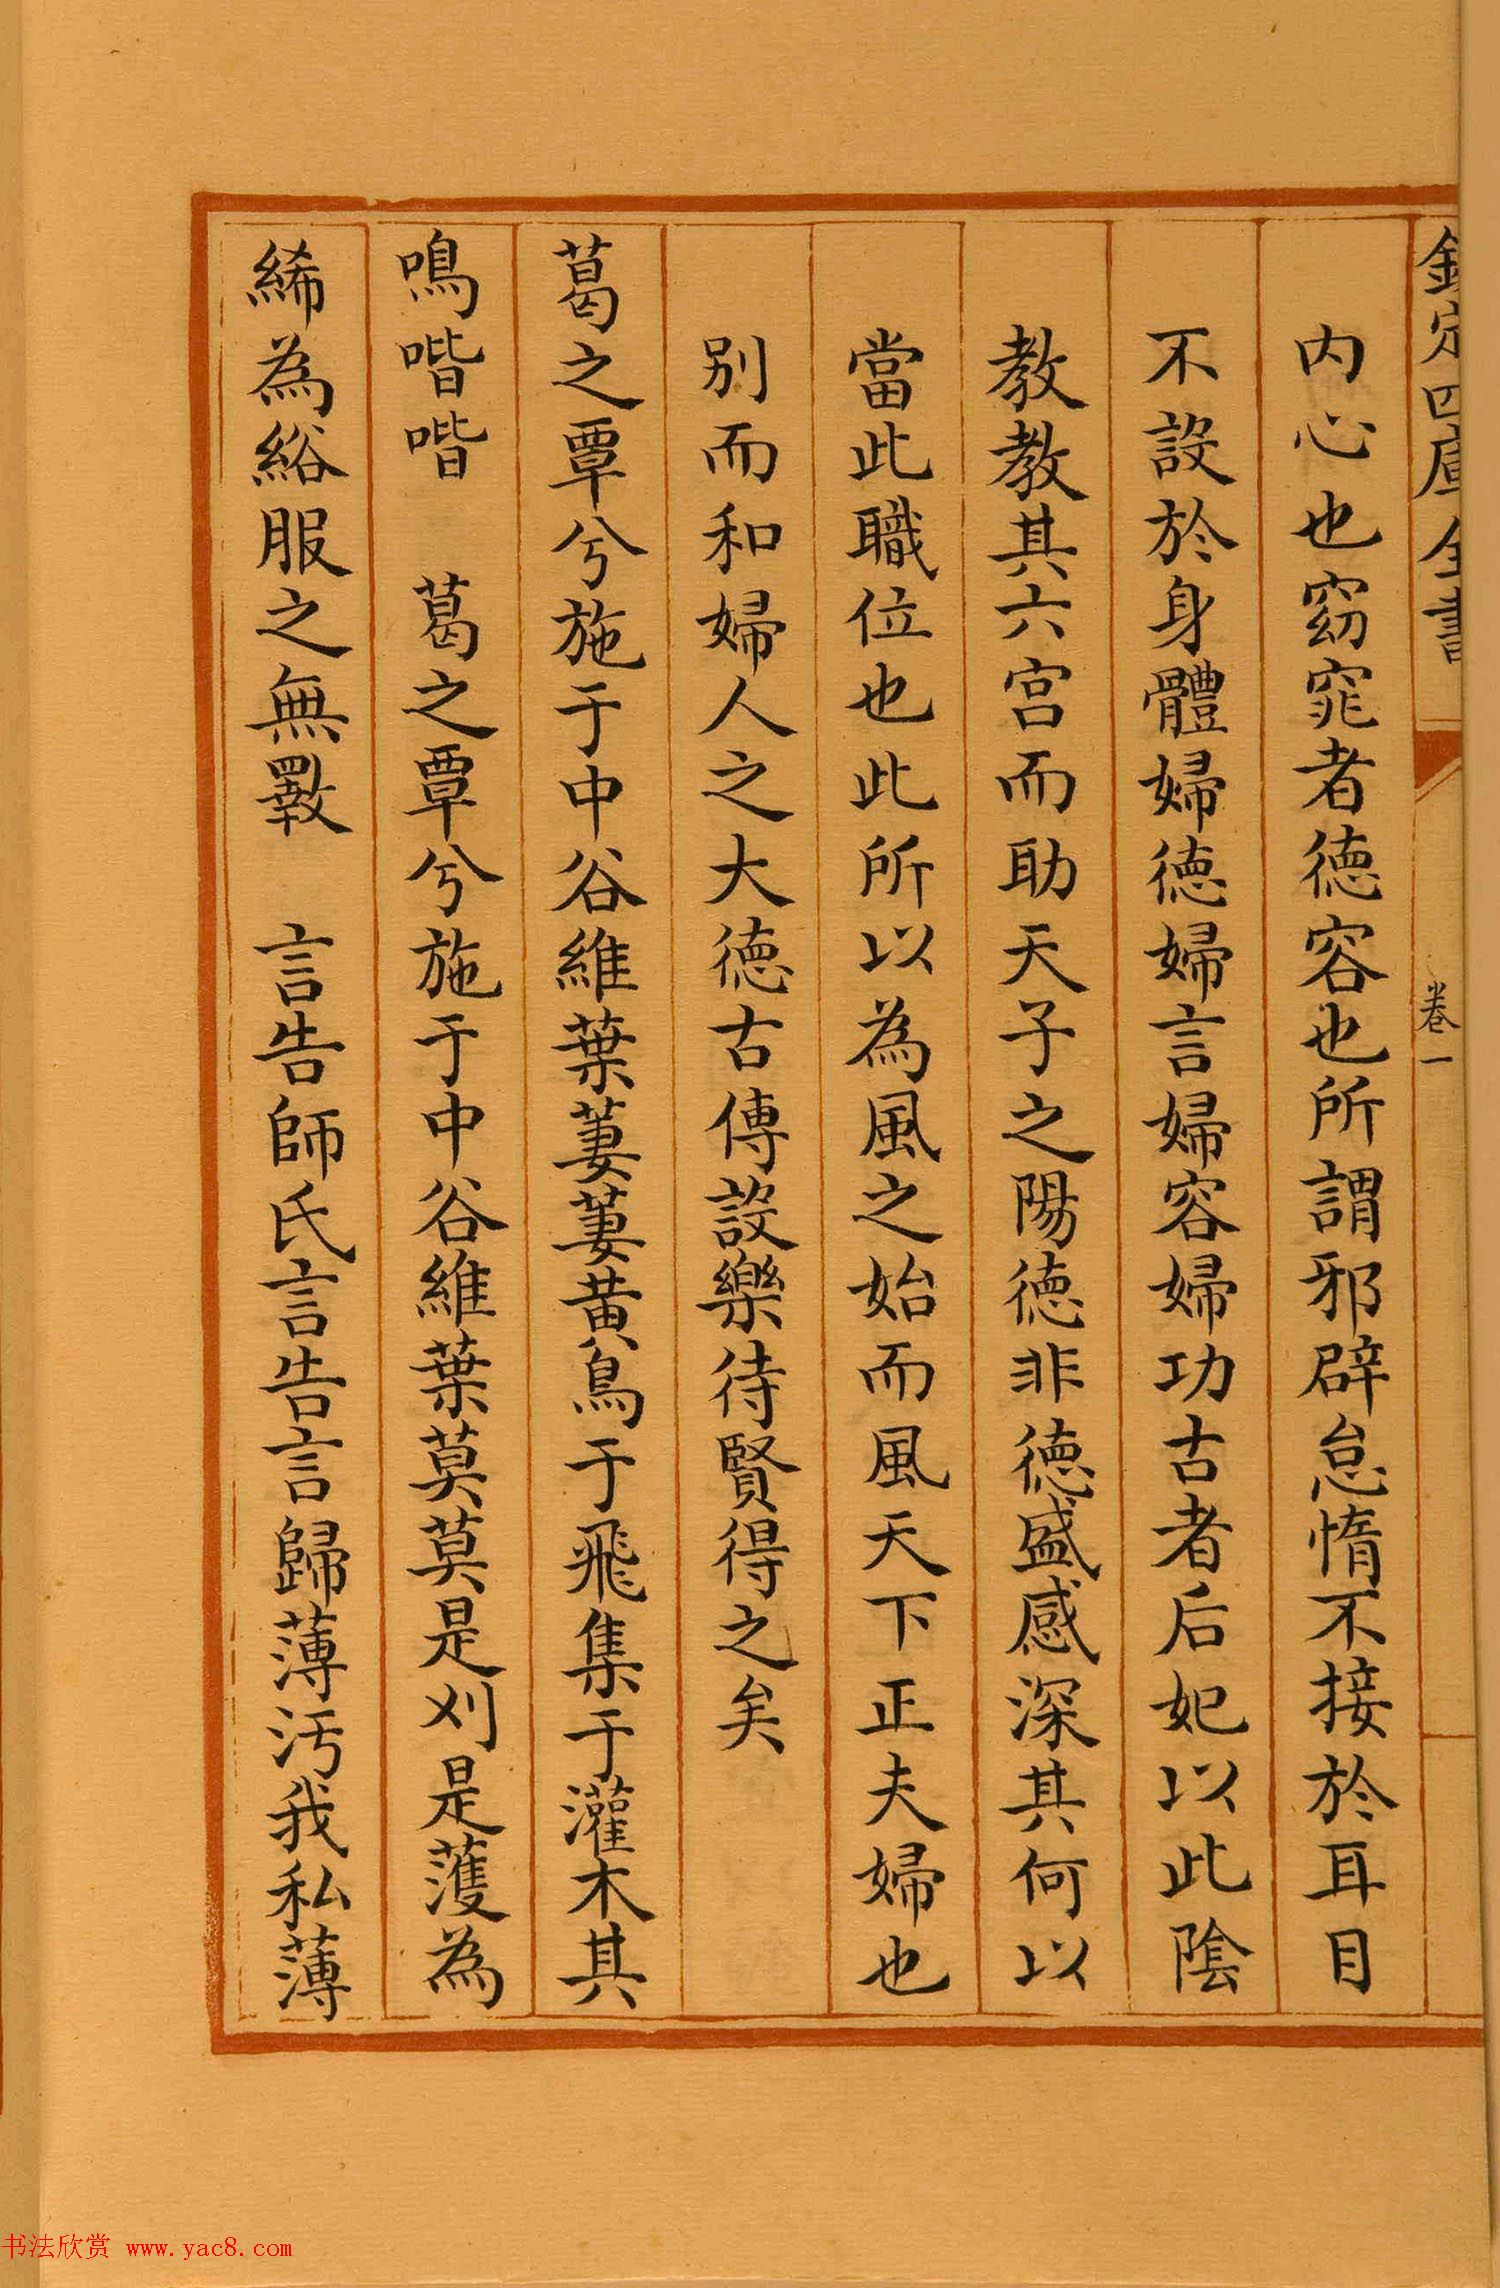 欽定四庫全書
卷一
内心也窈窕者德容也所謂邪辟怠惰不接於耳目
不設於身體婦德婦言婦容婦功古者后妃以此陰
教教其六宫而助天子之陽德非德盛感深其何以
當此職位也此所以為風之始而風天下正夫婦也
别而和婦人之大德古傳設樂待賢得之矣
葛之覃兮施于中谷維葉萋萋黄鳥于飛集于灌木其
鳴喈喈　葛之覃兮施于中谷維葉莫莫是刈是濩為
絺為綌服之無斁　言告師氏言告言歸薄汚我私薄
书法欣赏 www.yac8.com